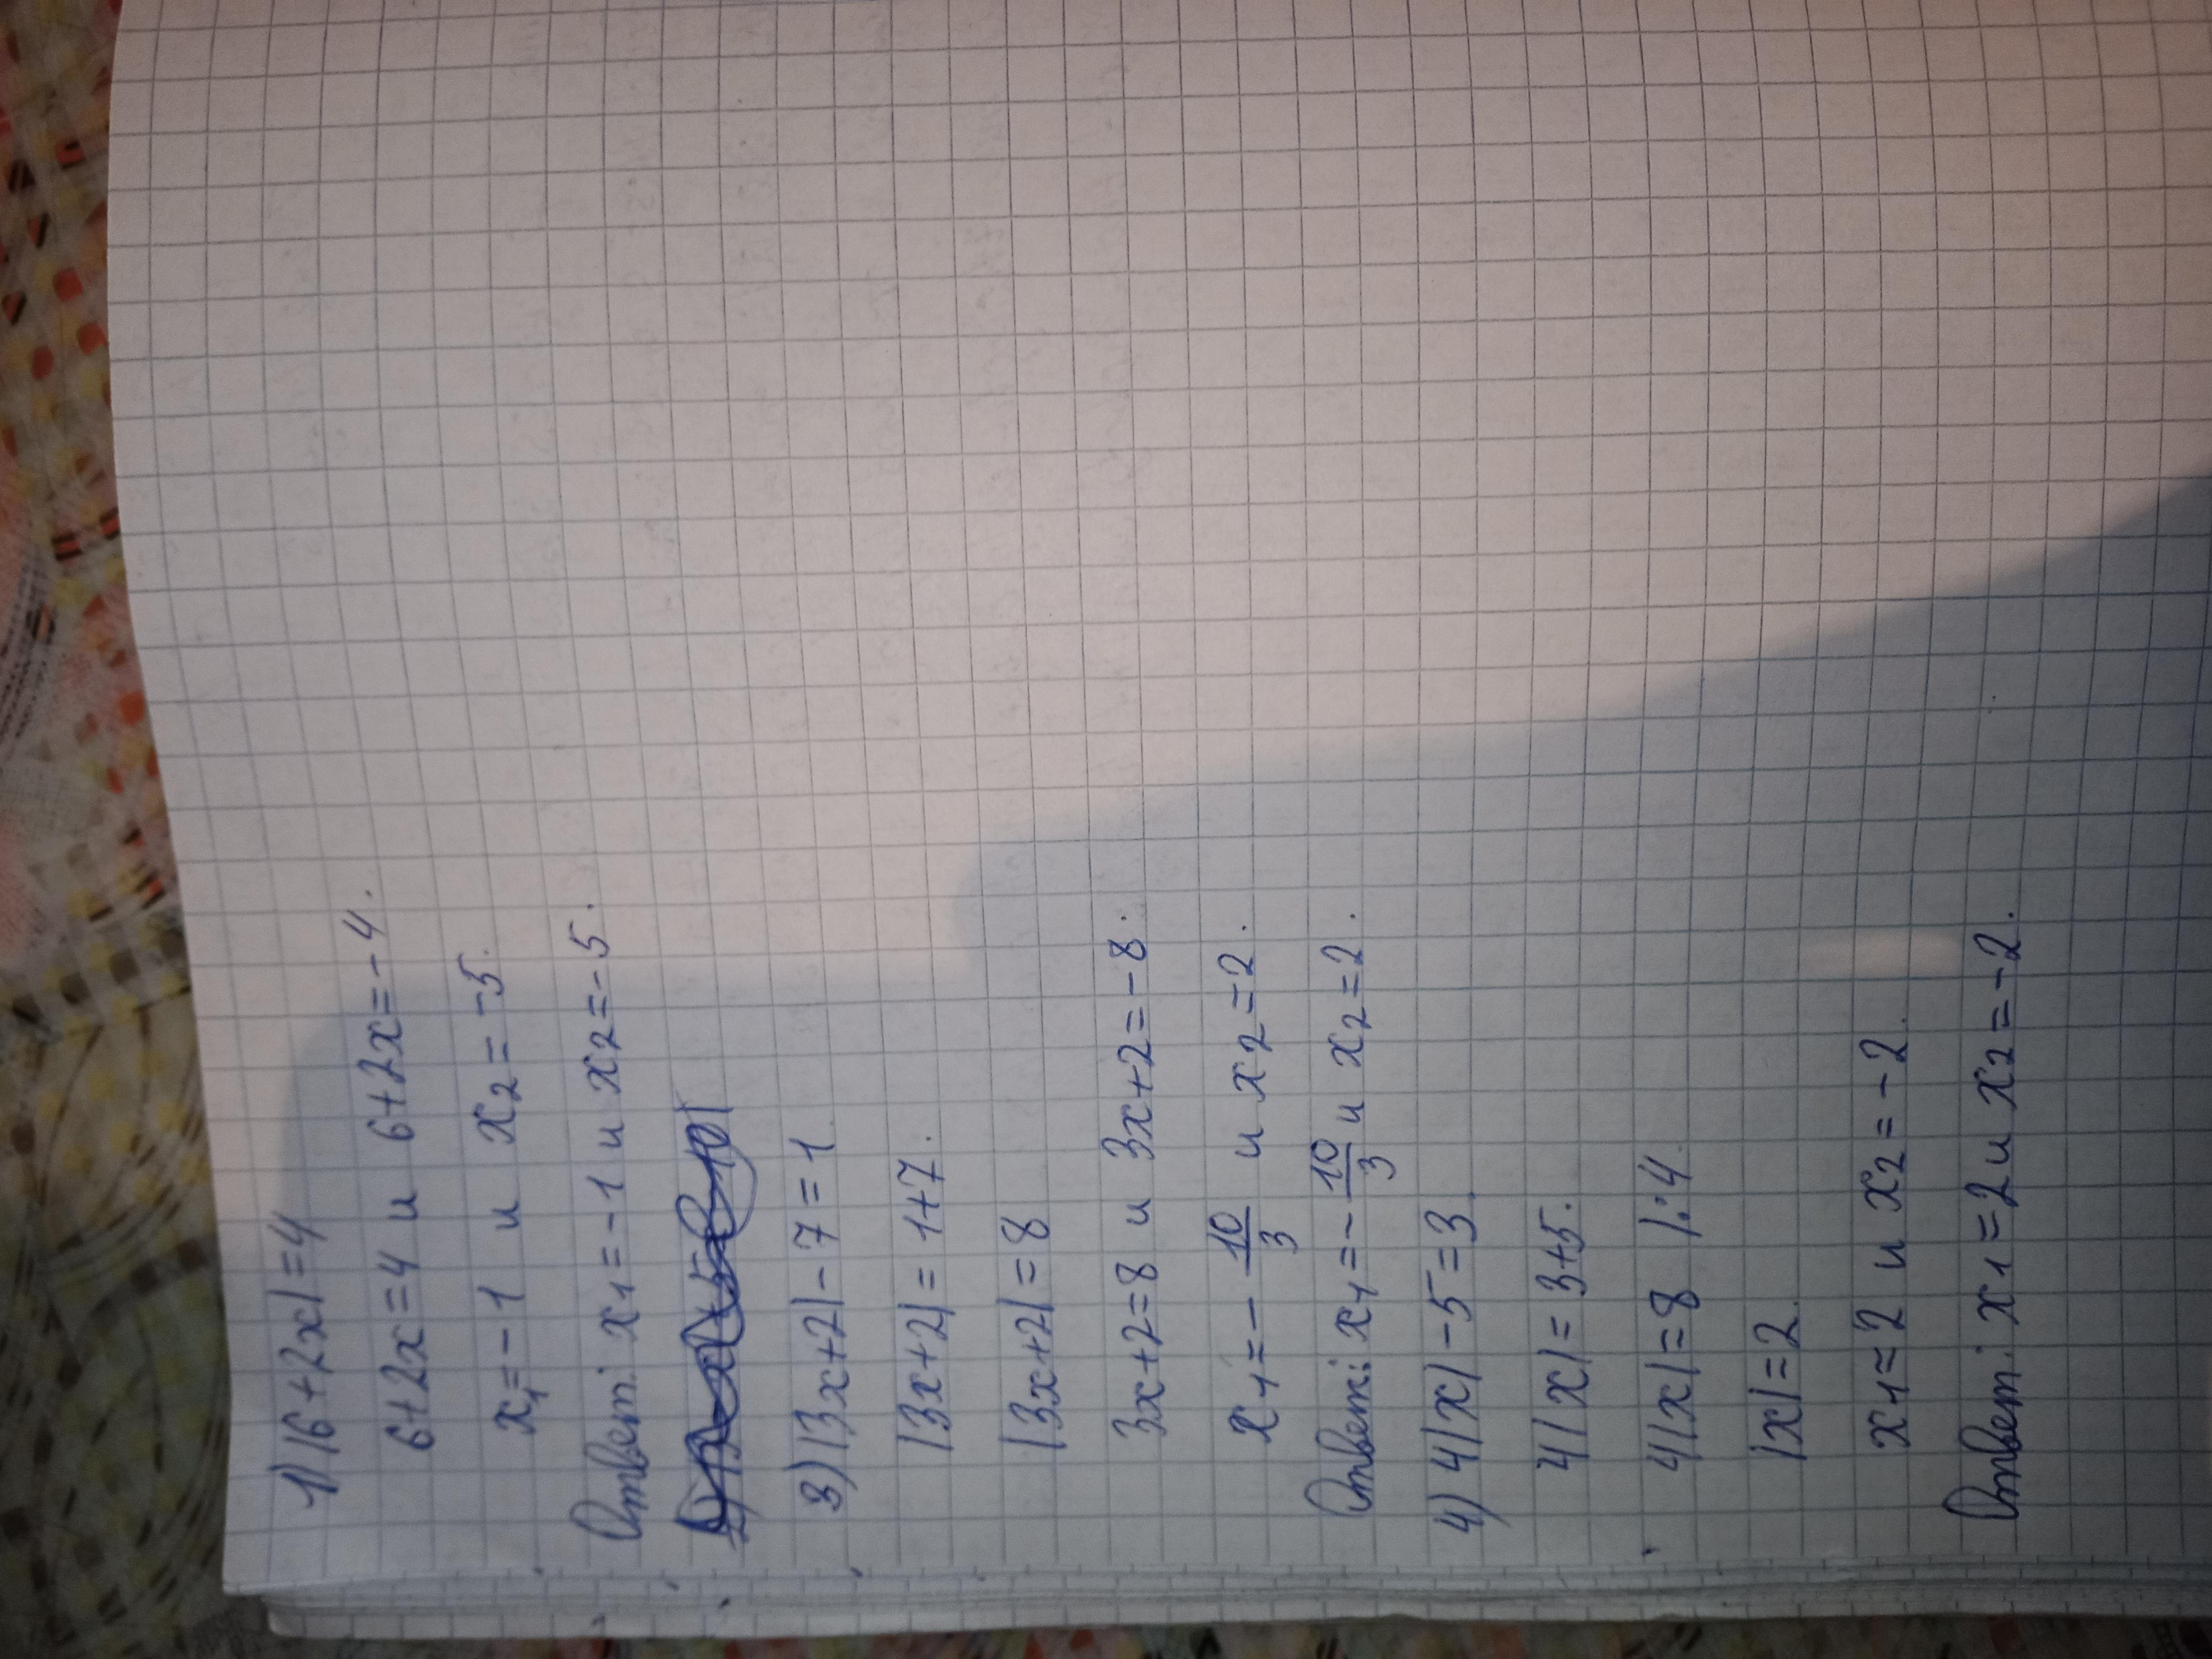 1) |6+2x|=4
6+2x=4 и 6+2x=-4.
x₁=-1 и x₂=-5.
Ответ: x₁=-1 и x₂=-5.
3) |3x+2|-7=1.
|3x+2|=1+7.
|3x+2|=8
3x+2=8 и 3x+2=-8.
x₁=-10/3 и x₂=2.
Ответ: x₁=-10/3 и x₂=2.
4) 4|x|-5=3.
4|x|=3+5.
4|x|=8 |:4.
|x|=2.
x₁=2 и x₂=-2.
Ответ: x₁=2 и x₂=-2.